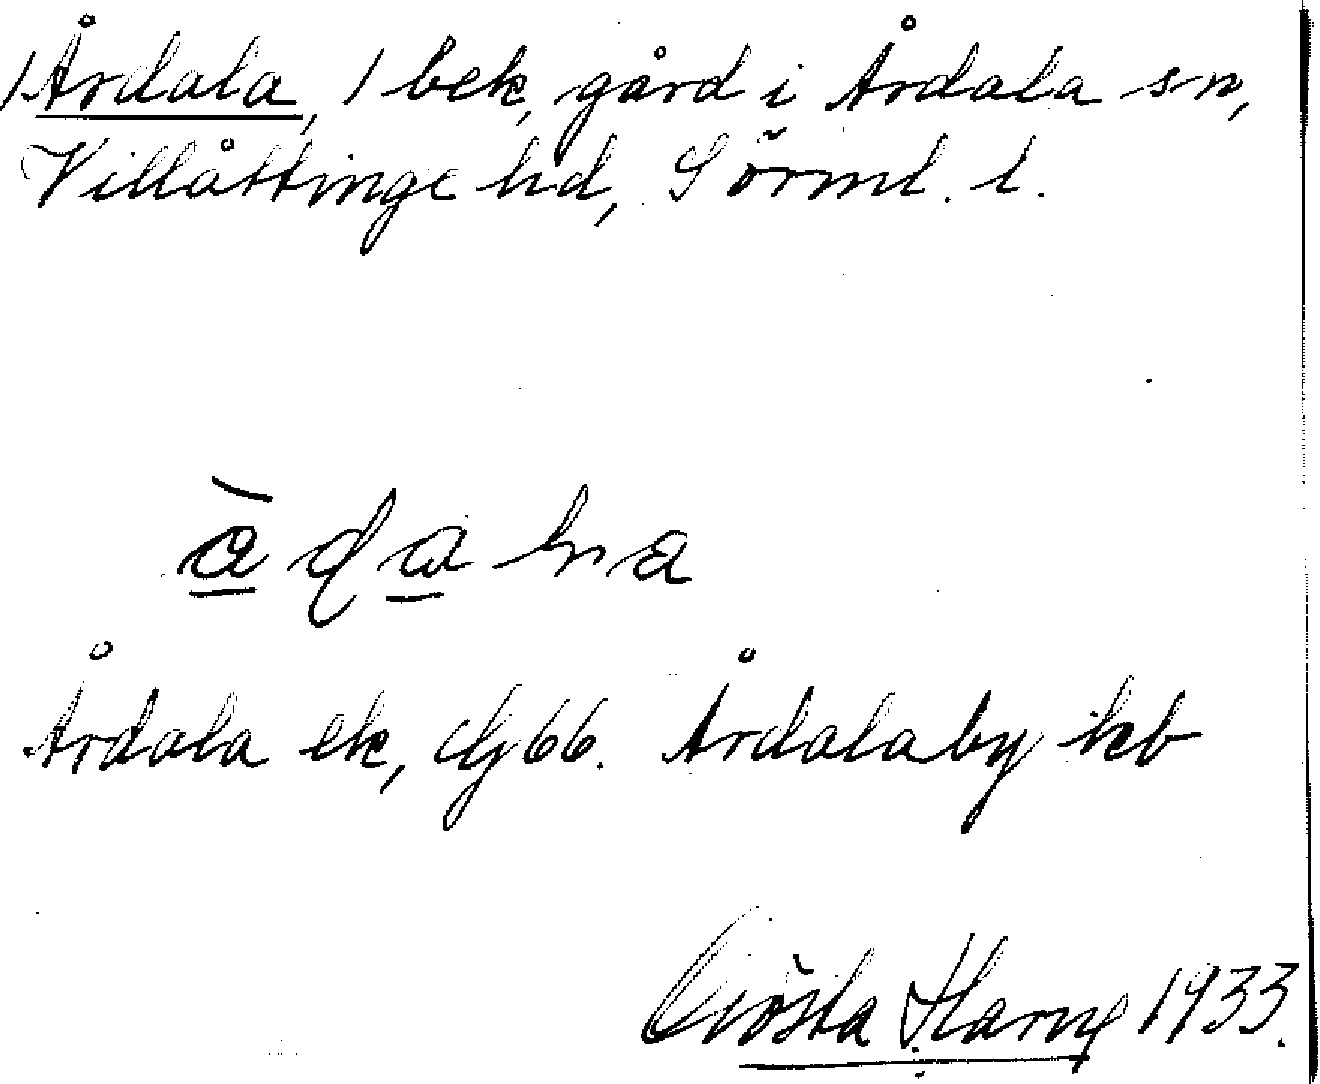 1 Årdala, 1 bek, gård i Årdala sn,
Villåttinge hd, Sörml. l.
Årdala ek, dg 66. Årdalaby kb
Gösta Harng 1933.